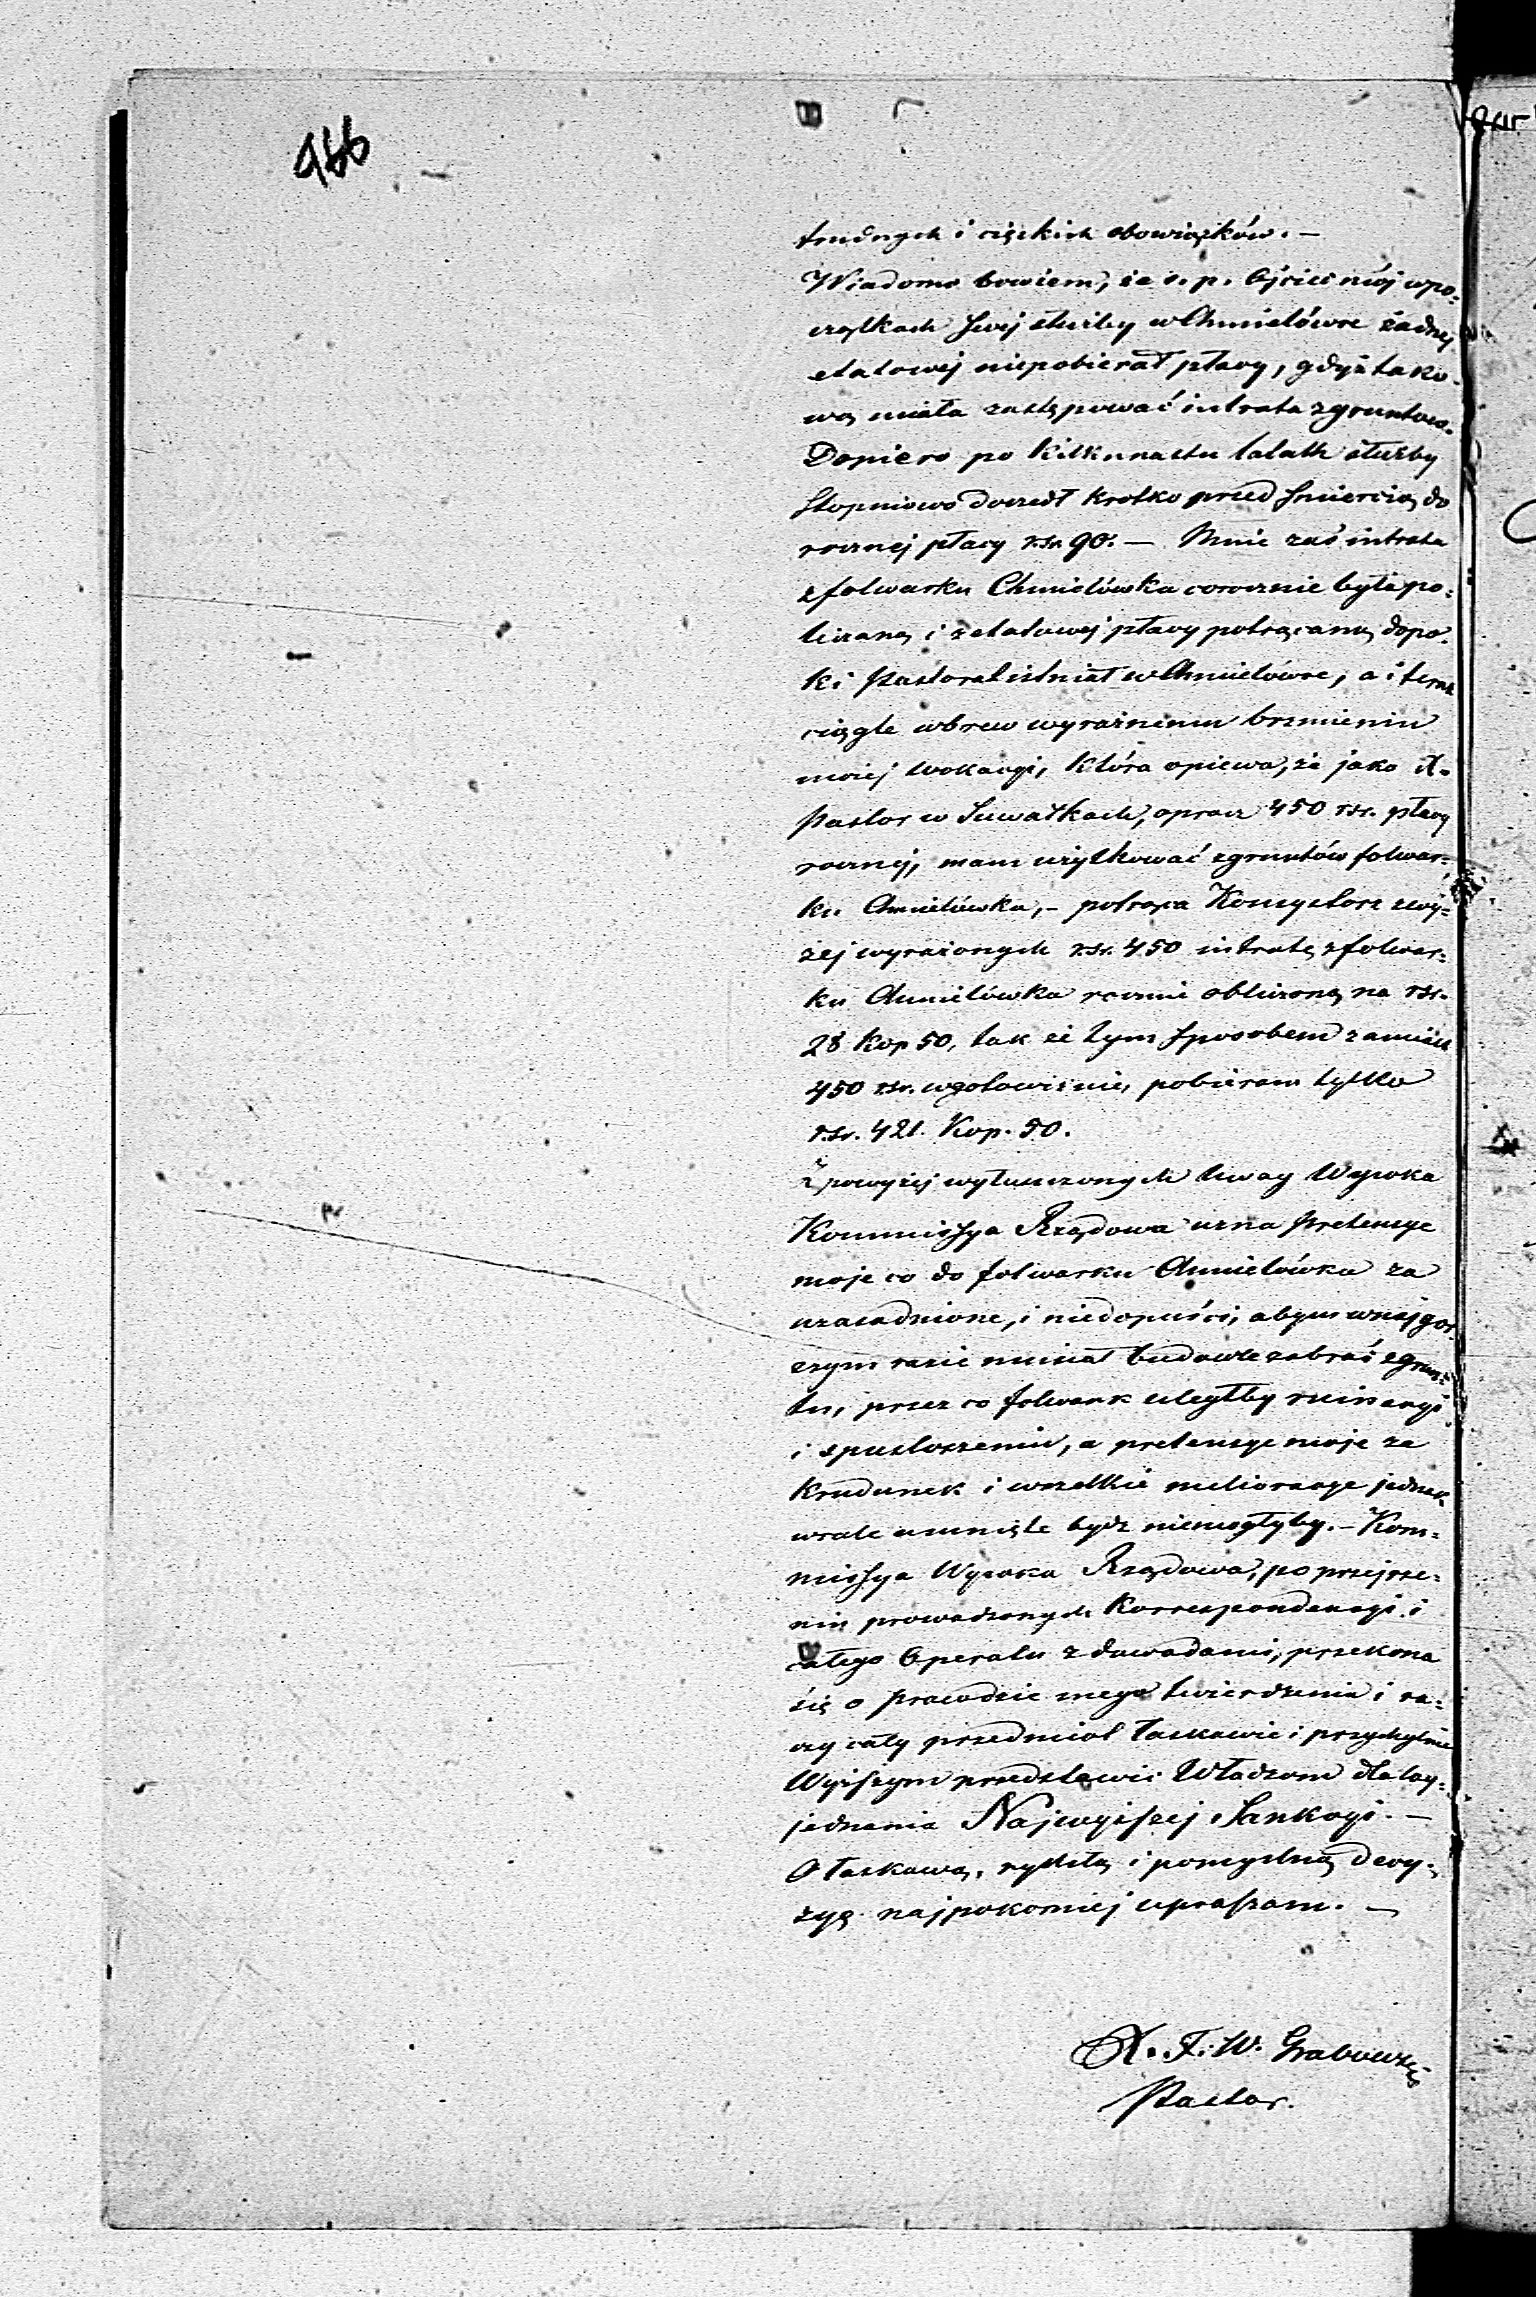 966
trudnych i ciężkich obowiązków. —
Wiadomo bowiem, że ś. p. Ojciec mój wpo-
czątkach swej służby w Chmielówce żadnej
etatowej niepobierał płacy, gdyż tako-
wą miała zastępować intrata zgruntów.
Dopiero po kilkunastu latach służby
stopniowo doszedł krótko przed śmiercią do
rocznej płacy rsr. 90. — Mnie zaś intrata
z folwarku Chmielówka corocznie była po-
liczaną i z etatowej płacy potrącaną, dopo-
ki Pastorat istniał w Chmielówce, a i teraz
ciągle wbrew wyraźnemu brzmieniu
mojej wokacyi, która opiewa, że jako
Pastor w Suwałkach, oprócz 450 rsr. płacy
rocznej, mam użytkować z gruntów folwar-
ku Chmielówka, — potrąca Konsystorz zwy-
żej wyrażonych rsr. 450 intratę z folwar-
ku Chmielówka rocznie obliczoną na rsr.
28 kop 50, tak że tym sposobem zamiast
450 rsr. wgotowiźnie, pobieram tylko
rsr. 421. Kop. 50.
Z powyżej wyłuszczonych uwag Wysoka
Kommissya Rządowa uzna pretensye
moje co do folwarku Chmielówka za
uzasadnione, i niedopuści, abym wnajgor-
szym razie musiał budowle zabrać z grun-
tu, przez co folwark uległby ruinacyi
i spustoszeniu, a pretensye moje za
krudunek i wszelkie melioracye jednak
wcale usunięte bydź niemogłyby. — Kom-
missya Wysoka Rządowa, po przejrze-
niu prowadzonych Korrespondencyi i
całego Operatu z dowodami, przekona
się o prawdzie mego twierdzenia i ra-
czy cały przedmiot łaskawie i przychylnie
Wyższym przedstawić Władzom dla wy-
jednania Najwyższej Sankcyi. —
O łaskawą, rychłą i pomyślną decy-
zyę najpokorniej upraszam. —
X. F. W. Grabowski
Pastor.